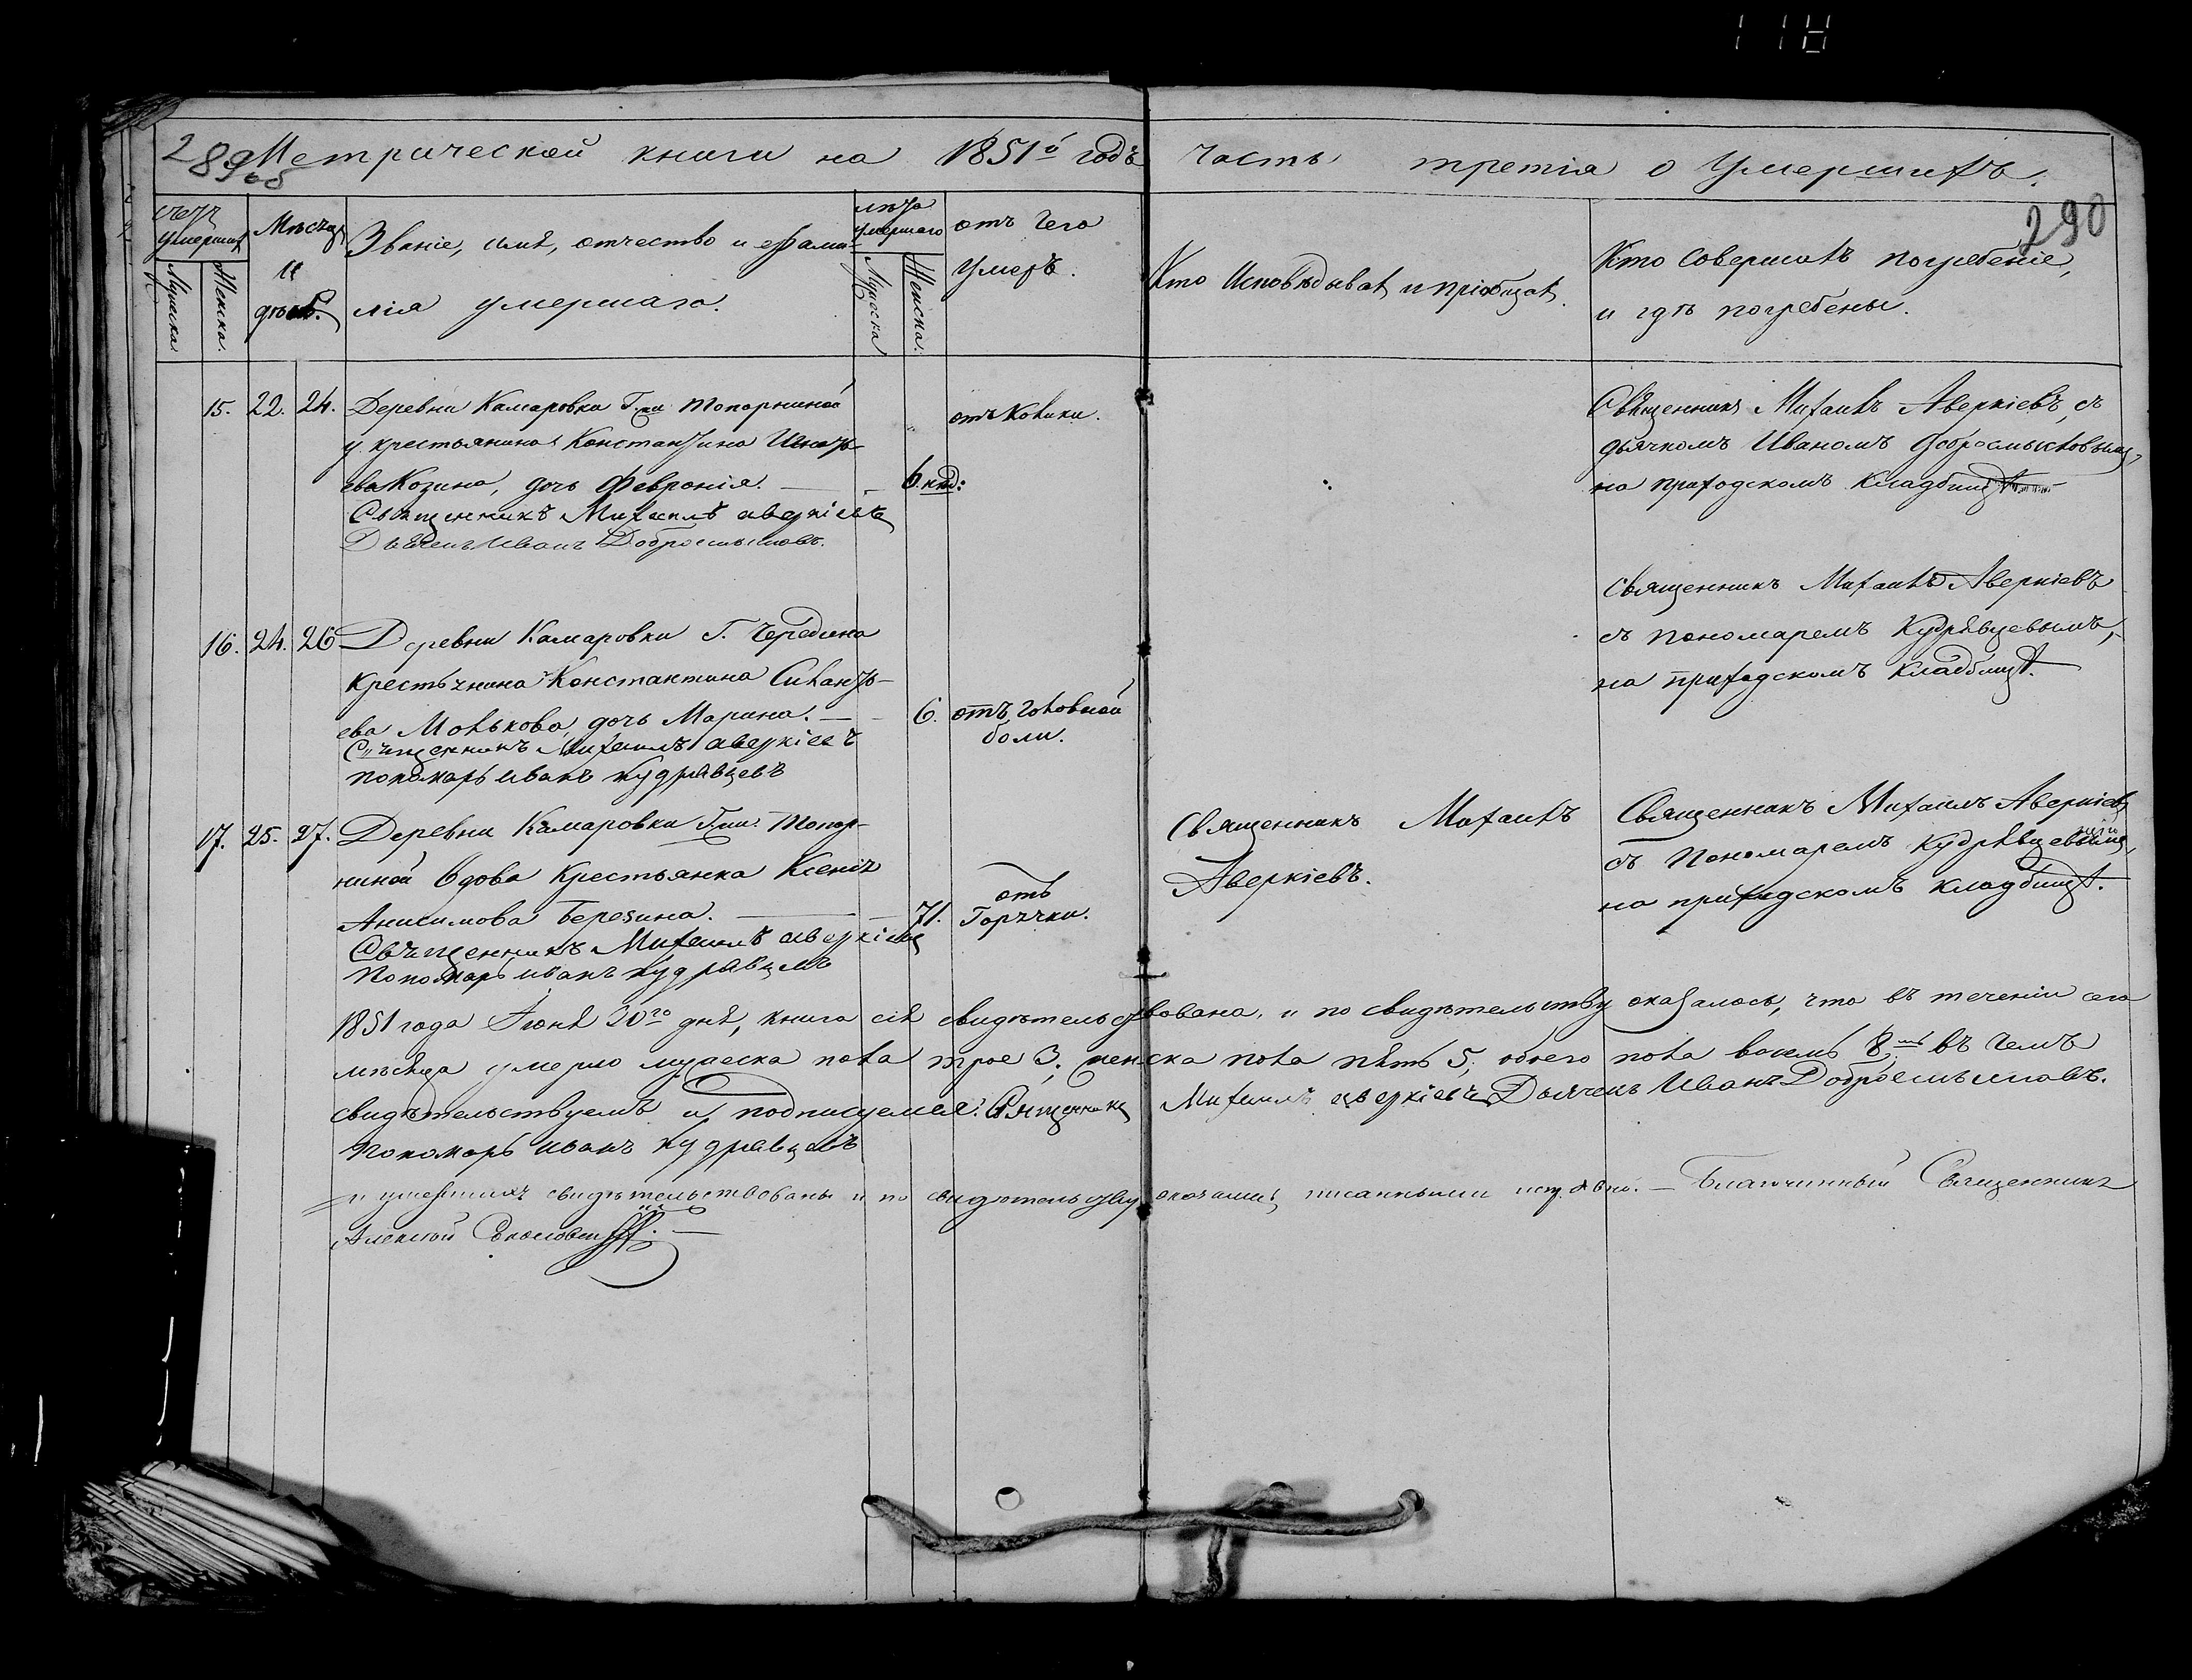 118
289 об
Метрической книги на 1851й годъ часть третія о Умершихъ.
290
Счетъ умершихъ
Мужеска.
Женска.
Мѣсяцъ и день.
Званіе, имя, отчество и фами-
лія умершаго.
лѣта умершаго
Мужеска
Женска.
отъ чего
умеръ.
Кто Исповѣдывалъ и пріобщалъ.
Кто совершалъ погребеніе,
и гдѣ погребены.
15. 22. 24. Деревни Камаровки Г.жи Топорниной
у крестьянина Константина Игнать-
ева Козина, дочь Февронія.
6. нед:
отъ Колики.
Священникъ Михаилъ Аверкіевъ, съ
дьячкомъ Иваномъ Добросмысловымъ,
на приходскомъ кладбищѣ
Священникъ Михаилъ Аверкіевъ
Дьячекъ Иванъ Добросмысловъ.
16. 24. 26 Деревни Камаровки Г. Чередина
Крестьянина Константина Силантъ-
ева Молькова, дочь Марина.
6.
отъ головной
боли.
Священникъ Михаилъ Аверкіевъ
съ пономаремъ Кудрявцевымъ,
на приходскомъ кладбищѣ.
Священникъ Михаилъ Аверкіевъ
пономарь Иванъ Кудрявцевъ
17. 25. 27. Деревни Камаровки Г.жи Топор-
ниной Вдова Крестьянка Ксенія
Анисимова Березина.
71.
отъ
Горячки.
Священникъ Михаилъ
Аверкіевъ.
Священникъ Михаилъ Аверкіевъ
съ Пономаремъ Кудрявцевымъ,
на приходскомъ кладбищѣ.
Священникъ Михаилъ Аверкіевъ
Пономарь Иванъ Кудрявцевъ
1851 года Іюня 30го дня, книга сія свидѣтельствована, и по свидѣтельству оказалось, что въ теченіи сего
мѣсяца умерло мужеска пола трое 3; женска пола пять 5; обоего пола восемь 8мь въ чемъ
свидѣтельствуемъ и подписуемся: Священникъ Михаилъ Аверкіевъ Дьячекъ Иванъ Добросмысловъ.
Пономарь Иванъ Кудрявцевъ
и умершихъ свидѣтельствованы и по свидѣтельству оказались писанными Благочинный Священникъ
Алексей